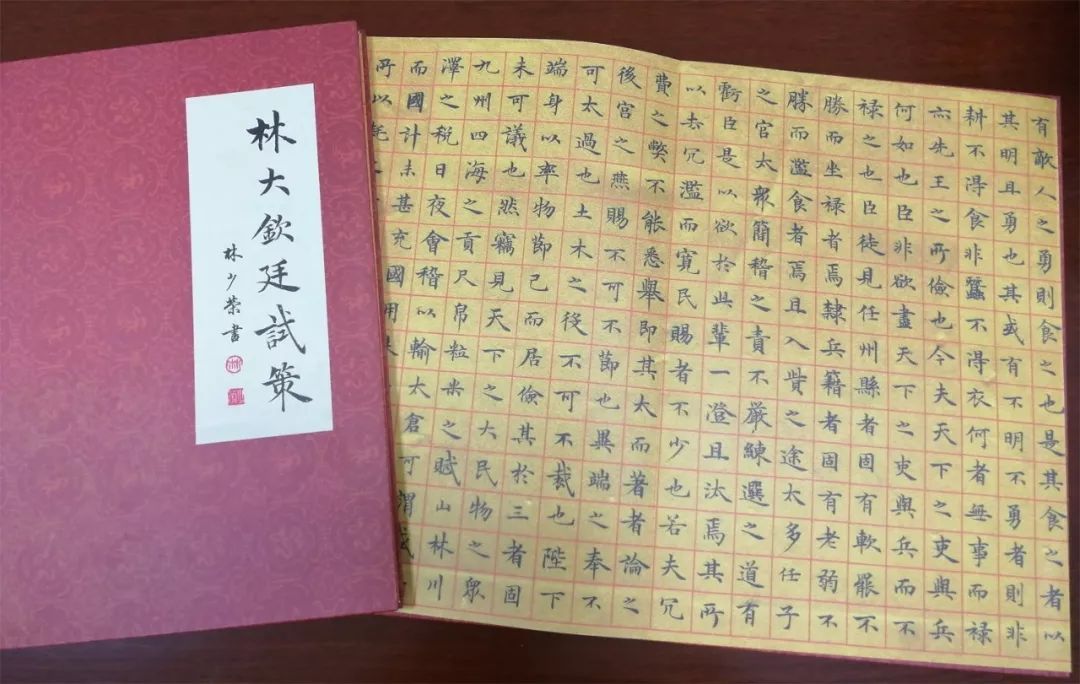 林大欽廷試策
林少榮書
有敵人之勇則食之也是其食之者以
其明且勇也其或有不明不勇者則非
耕不得食非蠶不得衣何者無事而祿
亦先王之所儉也今夫天下之吏與兵
何如也臣非欲盡天下之吏與兵而不
祿之也臣徒見任州縣者固有軟罷不
勝而坐祿者焉隸兵籍者固有老弱不
勝而濫食者焉且入貲之途太多任子
之官太衆簡稽之責不嚴練選之道有
虧臣是以欲於此輩一澄且汰焉其所
以去冗濫而寬民賜者不少也若夫冗
費之弊不能悉舉即其太而著者論之
後宮之燕賜不可不節也異端之奉不
可太過也土木之役不可不裁也陛下
端身以率物節己而居儉其於三者固
未可議也然竊見天下之大民物之眾
九州四海之貢尺帛粒米之賦山林川
澤之稅日夜會稽以輸太倉可謂盛
而國計未甚充國用
所以耗